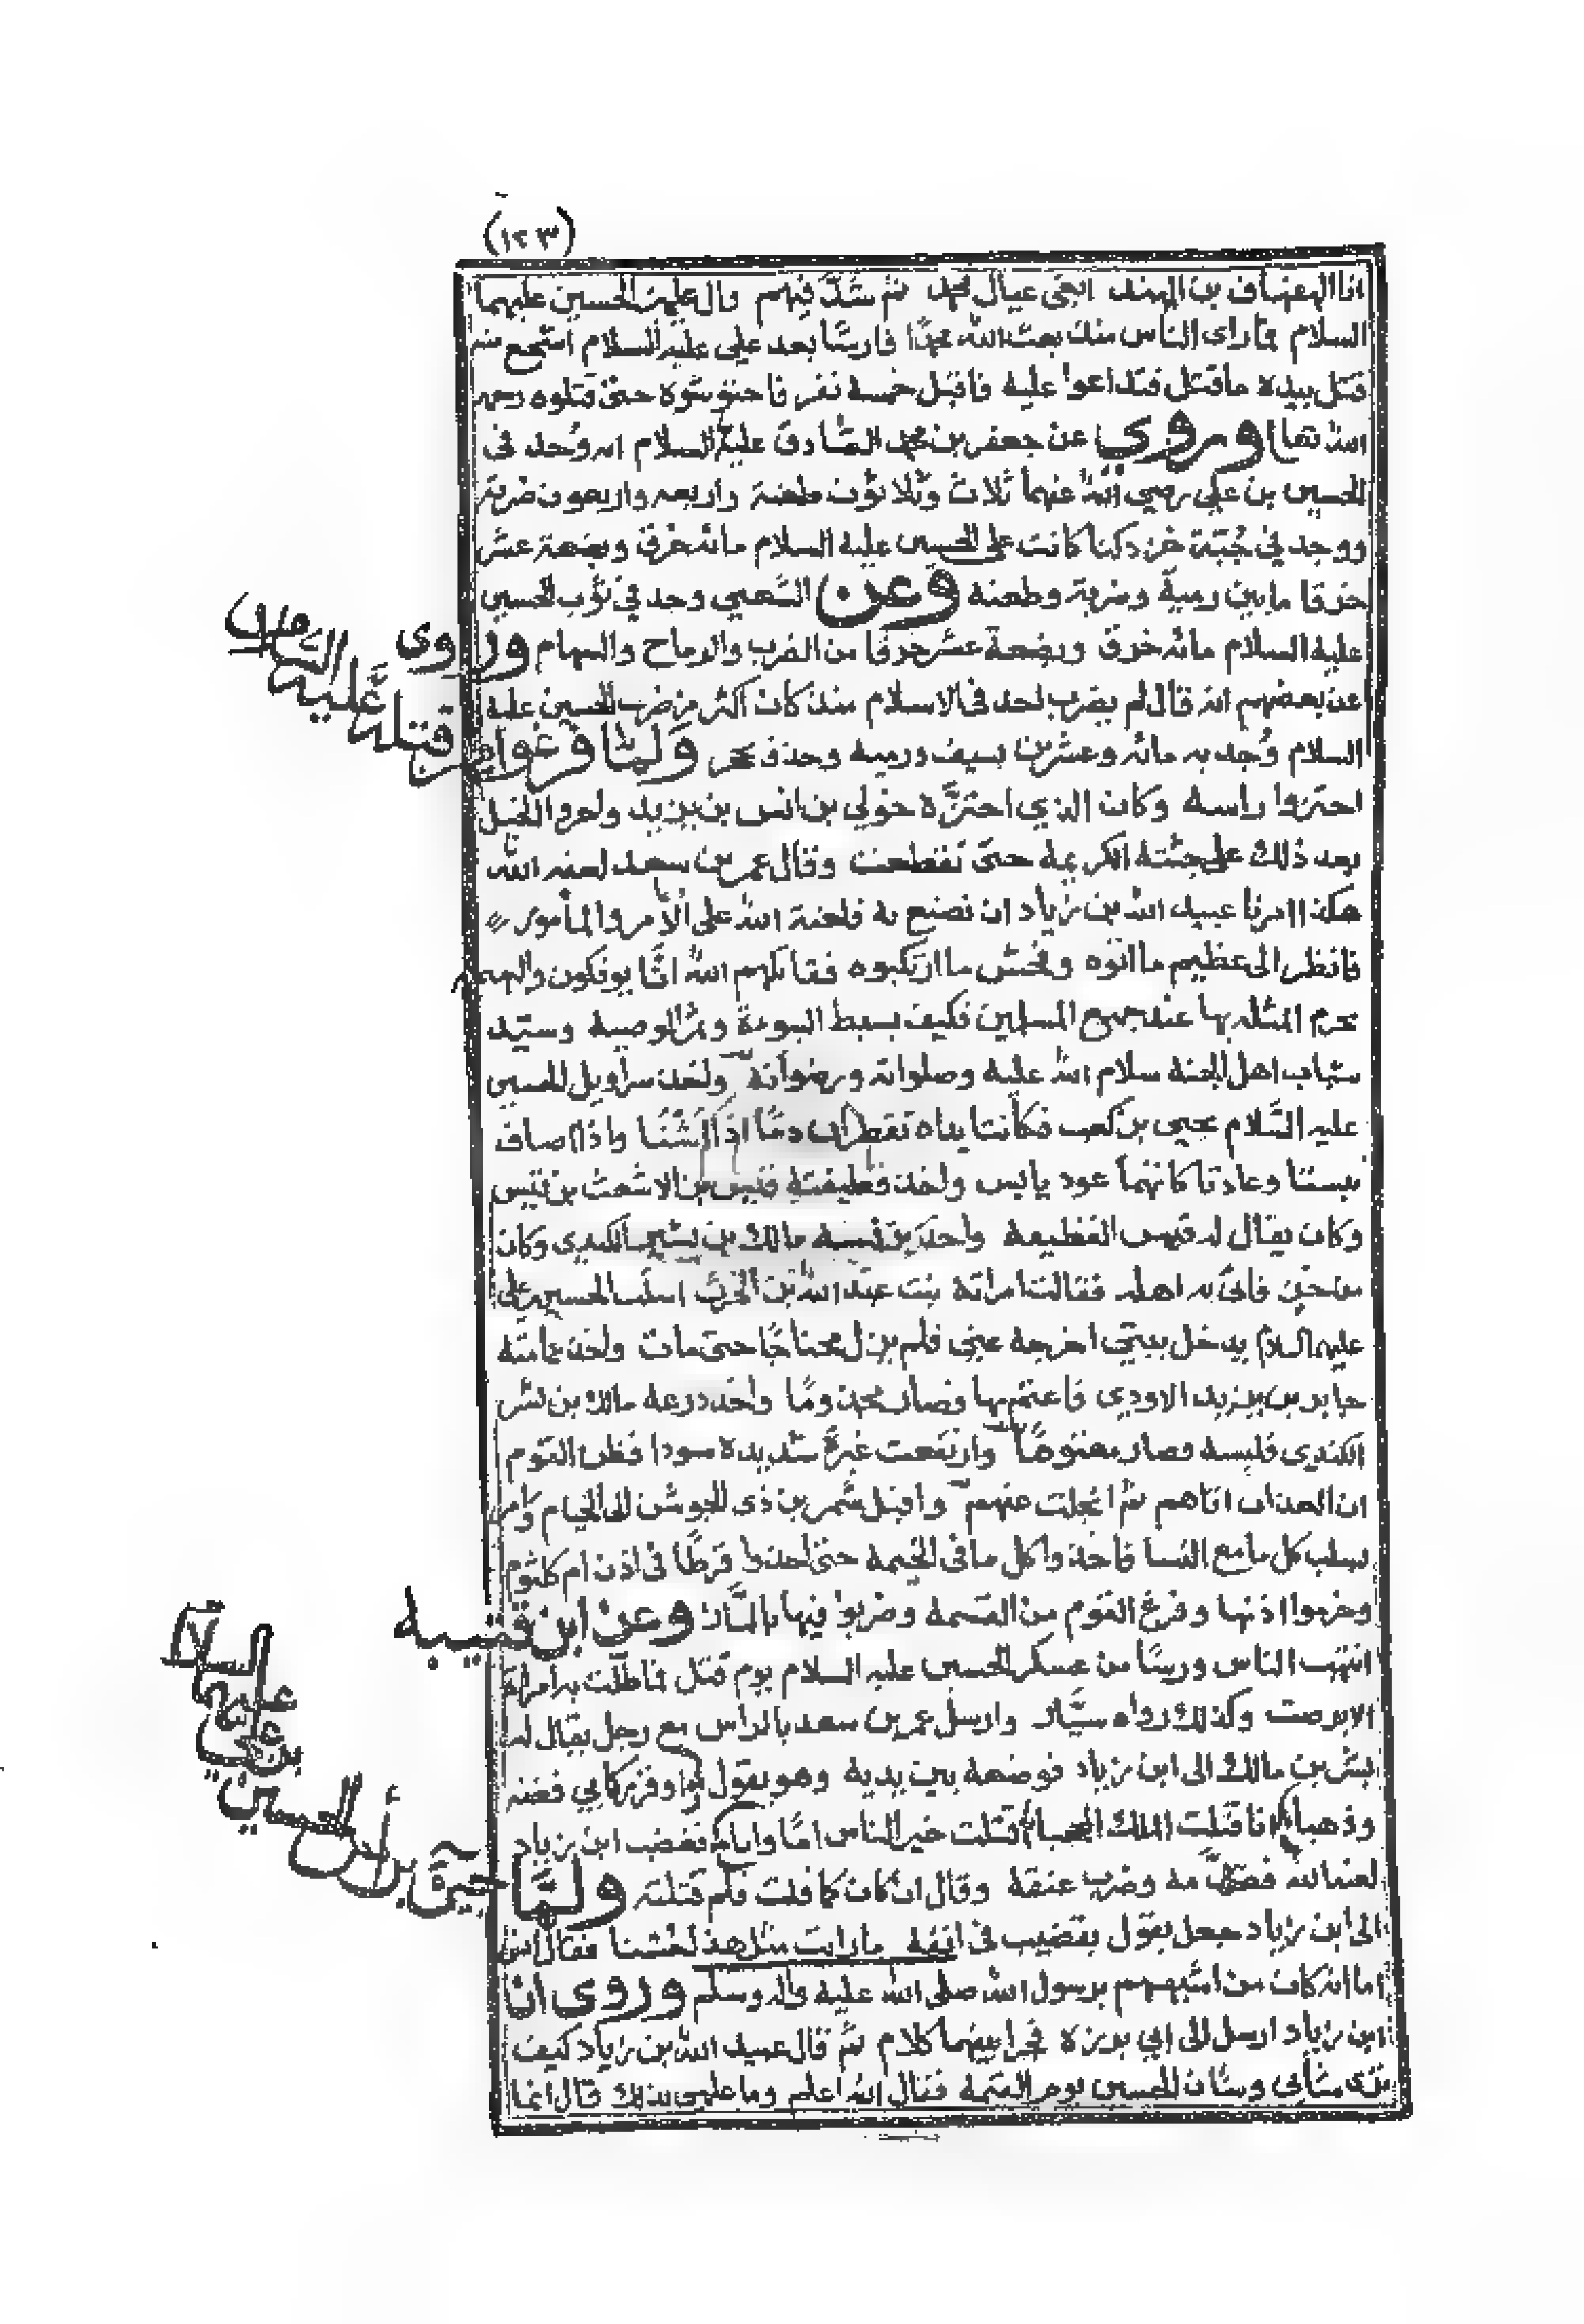 (١٢٣)
انا الهفهاف بن المهند احمى عيال محمد ثم شد فيهم قال علي بن الحسين عليهما
السلام فما راى الناس منذ بعث الله محمدا فارسا بعد علي عليه السلام اشجع منه
قتل بيده ما قتل فتداعوا عليه فاقبل خمسة نفر فاحتوشوه حتى قتلوه رحمه
الله تعالى وروي عن جعفر بن محمد الصادق عليه السلام انه وُجد فى
الحسين بن علي رضي الله عنهما ثلاث وثلاثون طعنة واربعه واربعون ضربة
ووجد في جُبّة خز دكنا كانت على الحسين عليه السلام مائه خرق وبضعة عشر
خرقا مابين رمية وضربة وطعنه وعن الشعبي وجد في ثوب الحسين
عليه السلام مائه خرق وبضعة عشر خرقا من الضرب والرماح والسهام وروى
عن بعضهم انه قال لم يضرب احد فى الاسلام منذ كان اكثر من ضرب الحسين عليه
السلام وُجد به مائه وعشرين بسيف ورميه وحذف حجر ولما فرغوا من قتله عليه السلام
احتزوا راسه وكان الذي احتزه خولي بن انس بن يزيد واجروا الخيل
بعد ذلك على جثته الكريمة حتى تقطعت وقال عمر بن سعد لعنه الله
هكذا امرنا عبيد الله بن زياد ان نصنع به فلعنة الله على الآمر والمأمور
فانظر الى عظيم ما اتوه وفحش ما ارتكبوه فقاتلهم الله انا يوفكون والبهيمه
تحرم المثله بها عند جميع المسلمين فكيف بسبط النبوءة و الوصية وسيد
شباب اهل الجنة سلام الله عليه وصلواته ورضوانه واخذ سراويل الحسين
عليه السّلام يحيى بن كعب فكانتا يداه تقطران دمًا اذا شتا واذا اصاف
يبستا وعادتا كانهما عود يابس واخذ قطيفته قيس بن الاشعث بن قيس
وكان يقال له قيس القطيفة واخذ برنسه مالك بن بشير الكندي وكان
من خز فاتى به اهله فقالت امراته بنت عبد الله بن الحرث اسلب الحسين بن علي
عليهما السلام يدخل بيتي اخرجه عني فلم يزل محتاجًا حتى مات واخذ عمامته
جابر بن يزيد الاودي فاعتم بها فصار مجذومًا واخذ درعه مالك بن بشر
الكندي فلبسه فصار معتوهًا وارتفعت غبرة شديدة سودا فظن القوم
ان العذاب اتاهم ثم انجلت عنهم واقبل شمر بن ذى الجوشن الى الخيام وامر
بسلب كل ما مع النسا فاخذوا كل ما فى الخيمة حتى اخذوا قرطًا فى اذن ام كلثوم
وخرموا اذنها وفرغ القوم من القسمة وضربوا فيها بالنار وعن ابن قتيبه
انتهب الناس ورسا من عسكر الحسين عليه السلام يوم قتل فما طلت به امراة
الا برصت وكذلك رواه سيار وارسل عمر بن سعد بالراس مع رجل يقال له
بشر بن مالك الى ابن زياد فوضعه بين يديه وهو يقول اوقر ركابي فضه
وذهبا انا قتلت الملك المحجبا قتلت خير الناس اما وابا فغضب ابن زياد
لعنه الله فضرب عنقه وقال ان كان كما قلت فلم قتلته ولمّا جيئ برأس الحسين بن علي عليهما السلام
الى ابن زياد جعل يقول بقضيب فى انفه ما رايت مثل هذا حسنا فقال انس
اما انه كان من اشبههم برسول الله صلى الله عليه واله وسلم وروى ان
ابن زياد ارسل الى ابي برزة فجرا بينهما كلام ثم قال عبيد الله بن زياد كيف
ترى شأني وشان الحسين يوم القيمة فقال الله اعلم وما علمي بذلك قال انما